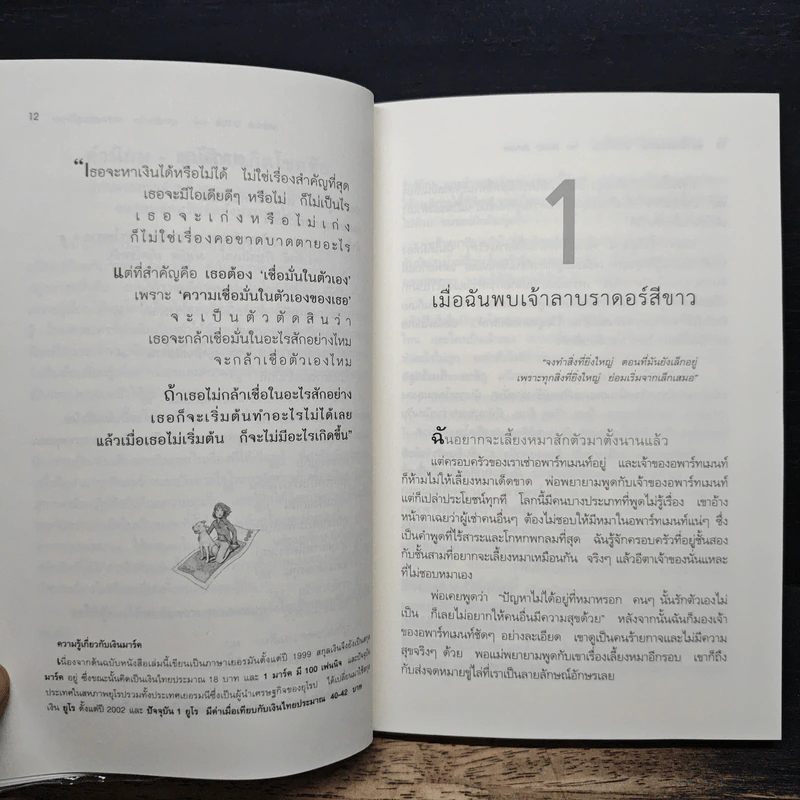 12
“เธอจะหาเงินได้หรือไม่ได้ ไม่ใช่เรื่องสำคัญที่สุด
เธอจะมีไอเดียดีๆ หรือไม่ ก็ไม่เป็นไร
เธอจะเก่งหรือไม่เก่ง
ก็ไม่ใช่เรื่องคอขาดบาดตายอะไร
แต่ที่สำคัญคือ เธอต้อง ‘เชื่อมั่นในตัวเอง’
เพราะ ‘ความเชื่อมั่นในตัวเองของเธอ’
จะเป็นตัวตัดสินว่า
เธอจะกล้าเชื่อมั่นในอะไรสักอย่างไหม
จะกล้าเชื่อตัวเองไหม
ถ้าเธอไม่กล้าเชื่อในอะไรสักอย่าง
เธอก็จะเริ่มต้นทำอะไรไม่ได้เลย
แล้วเมื่อเธอไม่เริ่มต้น ก็จะไม่มีอะไรเกิดขึ้น”
ความรู้เกี่ยวกับเงินมาร์ค
เนื่องจากต้นฉบับหนังสือเล่มนี้เขียนเป็นภาษาเยอรมันตั้งแต่ปี 1999 สกุลเงินจึงยังเป็นสกุล
มาร์ค อยู่ ซึ่งขณะนั้นคิดเป็นเงินไทยประมาณ 18 บาท และ 1 มาร์ค มี 100 เฟนนิจ และปัจจุบัน
ประเทศในสหภาพยุโรปรวมทั้งประเทศเยอรมนีซึ่งเป็นผู้นำเศรษฐกิจของยุโรป ได้เปลี่ยนมาใช้สกุล
เงิน ยูโร ตั้งแต่ปี 2002 และ ปัจจุบัน 1 ยูโร มีค่าเมื่อเทียบกับเงินไทยประมาณ 40-42 บาท
1
เมื่อฉันพบเจ้าลาบราดอร์สีขาว
“จงทำสิ่งที่ยิ่งใหญ่ ตอนที่มันยังเล็กอยู่
เพราะทุกสิ่งที่ยิ่งใหญ่ ย่อมเริ่มจากเล็กเสมอ”
ฉันอยากจะเลี้ยงหมาสักตัวมาตั้งนานแล้ว
แต่ครอบครัวของเราเช่าอพาร์ทเมนท์อยู่ และเจ้าของอพาร์ทเมนท์
ก็ห้ามไม่ให้เลี้ยงหมาเด็ดขาด พ่อพยายามพูดกับเจ้าของอพาร์ทเมนท์
แต่ก็เปล่าประโยชน์ทุกที โลกนี้มีคนบางประเภทที่พูดไม่รู้เรื่อง เขาอ้าง
หน้าตาเฉยว่าผู้เช่าคนอื่นๆ ต้องไม่ชอบให้มีหมาในอพาร์ทเมนท์แน่ๆ ซึ่ง
เป็นคำพูดที่ไร้สาระและโกหกพกลมที่สุด ฉันรู้จักครอบครัวที่อยู่ชั้นสอง
กับชั้นสามที่อยากจะเลี้ยงหมาเหมือนกัน จริงๆ แล้วอีตาเจ้าของนั่นแหละ
ที่ไม่ชอบหมาเอง
พ่อเคยพูดว่า “ปัญหาไม่ได้อยู่ที่หมาหรอก คนๆ นั้นรักตัวเองไม่
เป็น ก็เลยไม่อยากให้คนอื่นมีความสุขด้วย” หลังจากนั้นฉันก็มองเจ้า
ของอพาร์ทเมนท์ชัดๆ อย่างละเอียด เขาดูเป็นคนร้ายกาจและไม่มีความ
สุขจริงๆ ด้วย พอแม่พยายามพูดกับเขาเรื่องเลี้ยงหมาอีกรอบ เขาก็ถึง
กับส่งจดหมายขู่ไล่ที่เราเป็นลายลักษณ์อักษรเลย